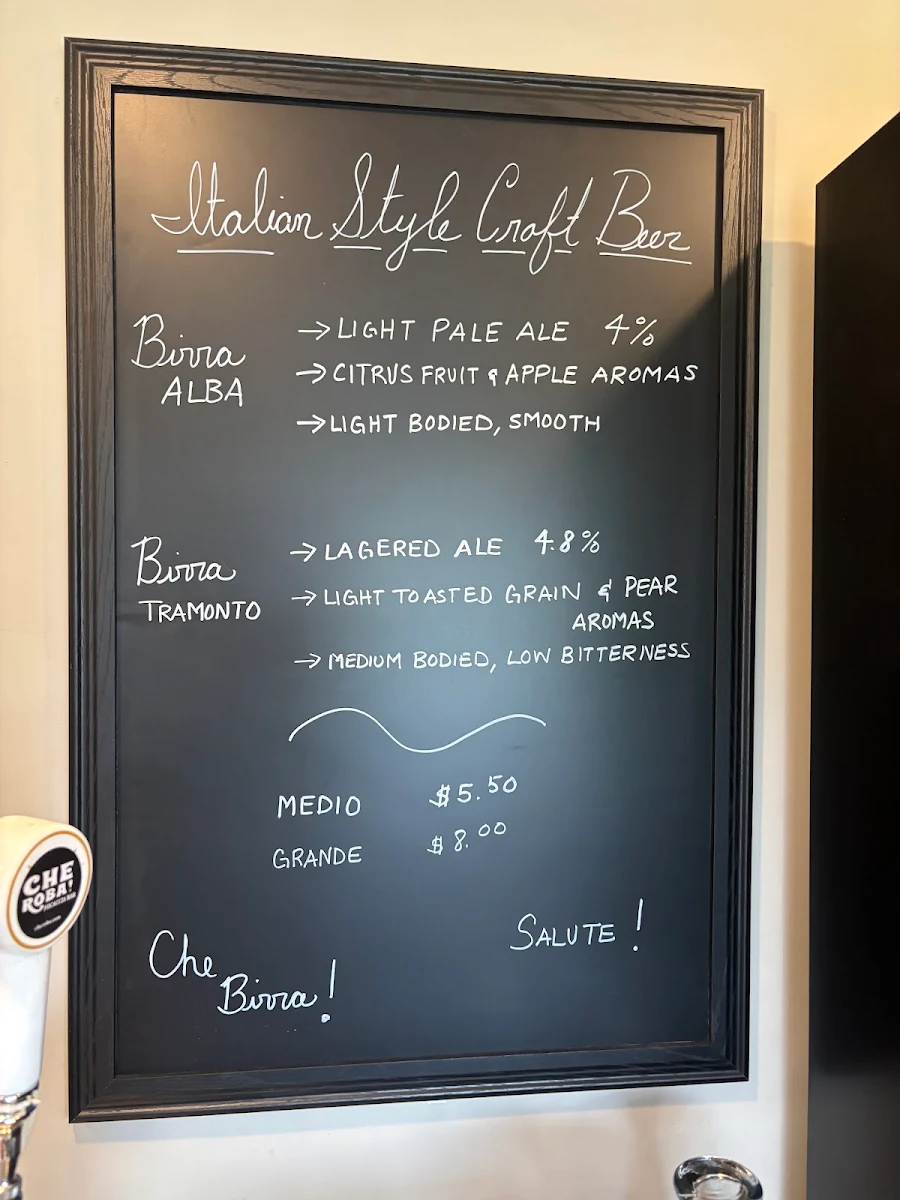 Italian Style Craft Beer
Birra
ALBA
→ LIGHT PALE ALE 4%
→ CITRUS FRUIT & APPLE AROMAS
→ LIGHT BODIED, SMOOTH
Birra
TRAMONTO
→ LAGERED ALE 4.8%
→ LIGHT TOASTED GRAIN & PEAR
AROMAS
→ MEDIUM BODIED, LOW BITTERNESS
MEDIO $5.50
GRANDE $8.00
Che
Birra!
SALUTE!
CHE
ROBA!
FOCACCIA BAR